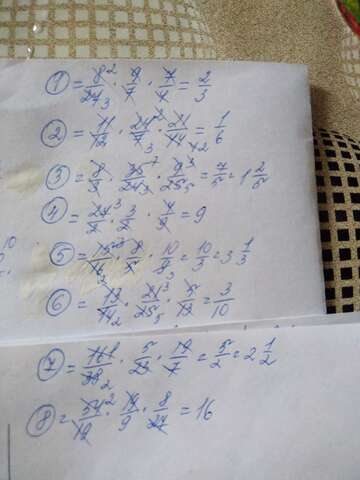 ① = 8²/27₃ · 9/7 · 7/4 = 2/3
② = 11/12 · 24²/7₃ · 21/44 = 1/6
③ = 8/3 · 35⁷/24₃ · 9³/25₅ = 7/5 = 1 2/5
④ = 27³/2 · 3/2 · 4/9 = 9
⑤ = /16₂ · 8/ · 10/ = 10/3 = 3 1/3
⑥ = 13/14₂ · 21³/25₅ · 5/13 = 3/10
⑦ = 161/38₂ · 5/23 · 19/7 = 5/2 = 2 1/2
⑧ = 54²/19 · 19/9 · 8/27 = 16